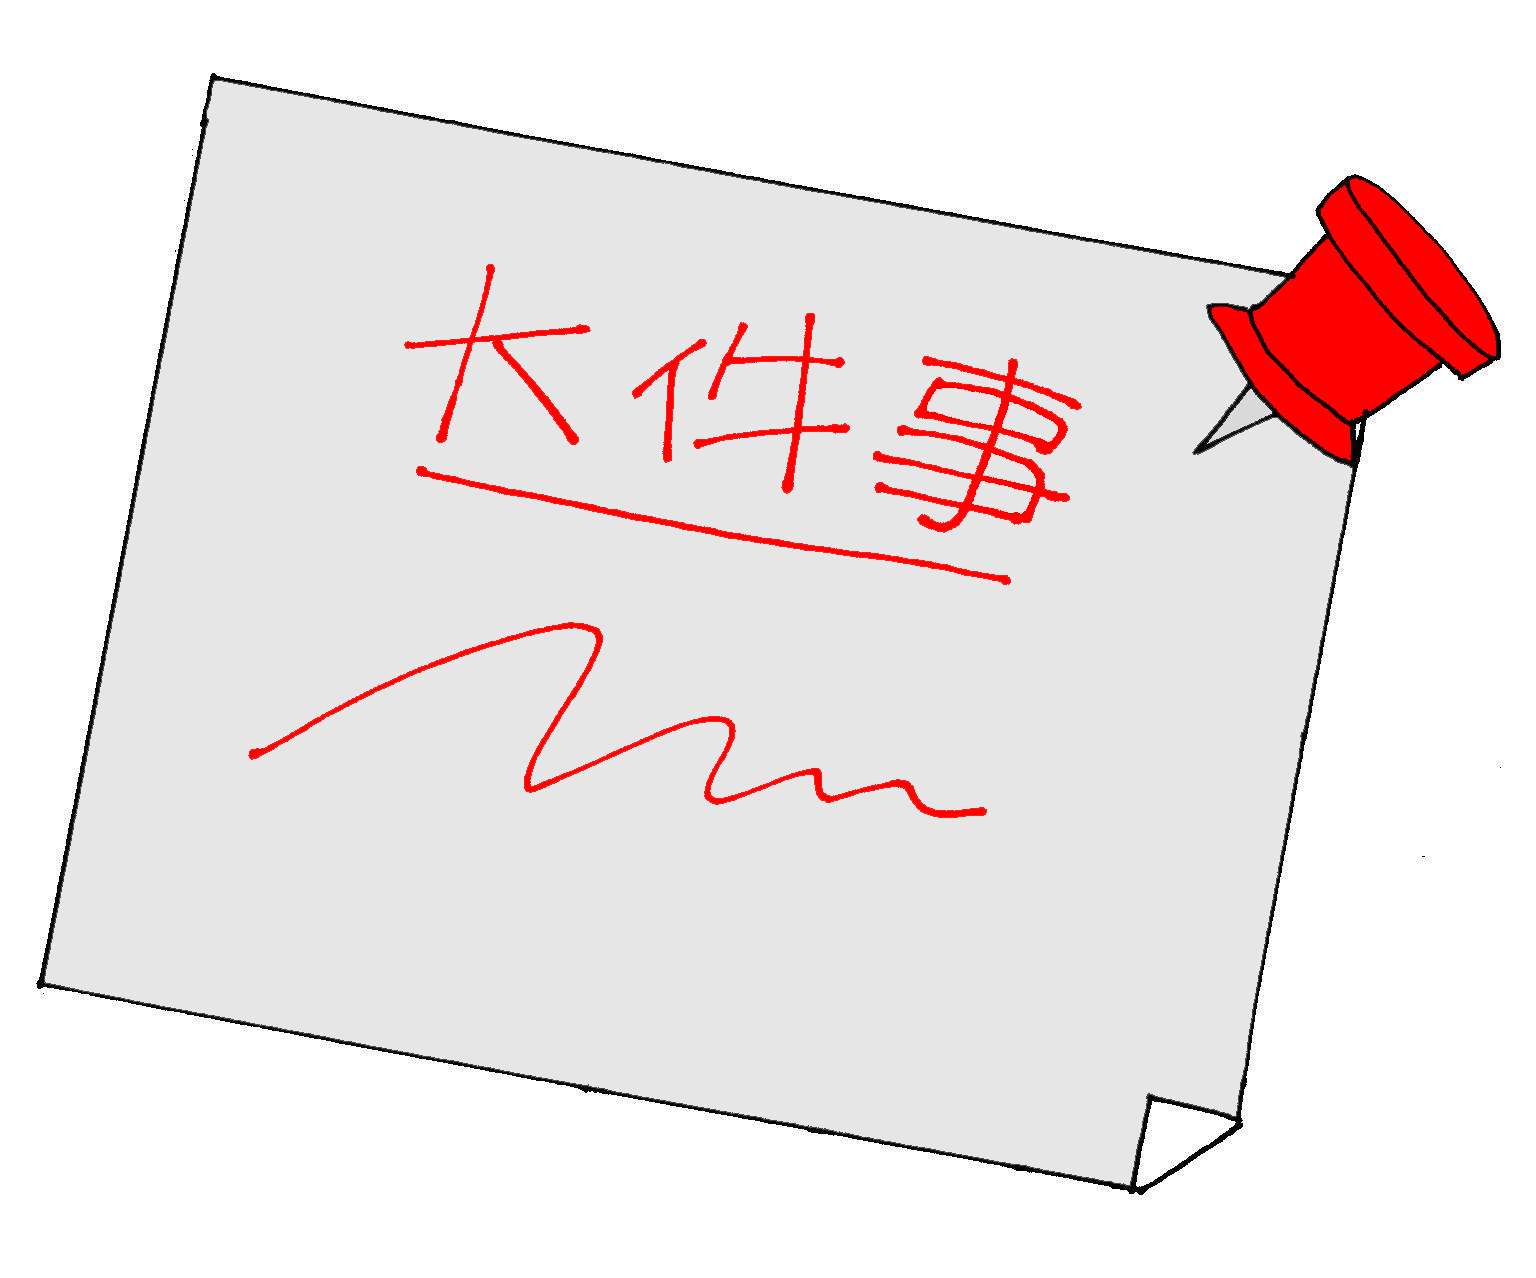 大件事